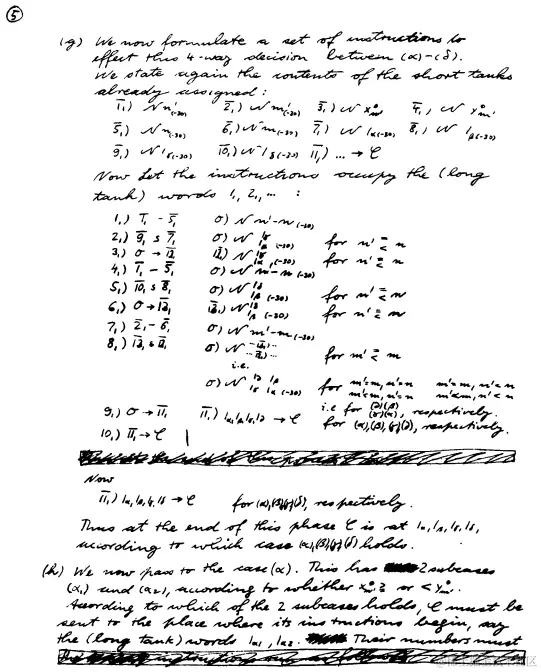 ⑤
(g) We now formulate a set of instructions to
effect this 4-way decision between (α)-(δ).
We state again the contents of the short tanks
already assigned:
1̄₁) N n'(-30) 2̄₁) N m'(-30) 3̄₁) N x⁰n' 4̄₁) N y⁰m'
5̄₁) N n(-30) 6̄₁) N m(-30) 7̄₁) N 1α(-30) 8̄₁) N 1β(-30)
9̄₁) N 1γ(-30) 10̄₁) N 1δ(-30) 11̄₁) ... → C
Now let the instructions occupy the (long
tank) words 1₁, 2₁, ... :
1₁) 1̄₁ - 5̄₁ O) N n'-n(-30)
2₁) 9̄₁ s 7̄₁ O) N 1γ 1α (-30) for n' ≥ < n
3₁) O → 12̄₁ 12̄₁) N 1γ 1α (-30) for n' ≥ < n
4₁) 1̄₁ - 5̄₁ O) N n'-n (-30)
5₁) 10̄₁ s 8̄₁ O) N 1δ 1β (-30) for n' ≥ < n
6₁) O → 13̄₁ 13̄₁) N 1δ 1β (-30) for n' ≥ < n
7₁) 2̄₁ - 6̄₁ O) N m'-m (-30)
8₁) 13̄₁ s 12̄₁ O) N for m' ≥ < m
i.e.
O) N 1δ 1β 1γ 1α (-30) for m'=m, n'=n m'=m, n'<n
m'<m, n'=n m'<m, n'<n
9₁) O → 11̄₁ 11̄₁) 1α, 1β, 1γ, 1δ → C i.e. for (δ)(β) (γ)(α), respectively.
for (α), (β), (γ), (δ), respectively.
10₁) 11̄₁ → C
Now
11̄₁) 1α, 1β, 1γ, 1δ → C for (α), (β), (γ), (δ), respectively.
Thus at the end of this phase C is at 1α, 1β, 1γ, 1δ,
according to which case (α), (β), (γ), (δ) holds.
(h) We now pass to the case (α). This has 2 subcases
(α₁) and (α₂), according to whether x⁰n' ≥ or < y⁰m'.
According to which of the 2 subcases holds, C must be
sent to the place where its instructions begin, say
the (long tank) words 1α1, 1α2. Their numbers must